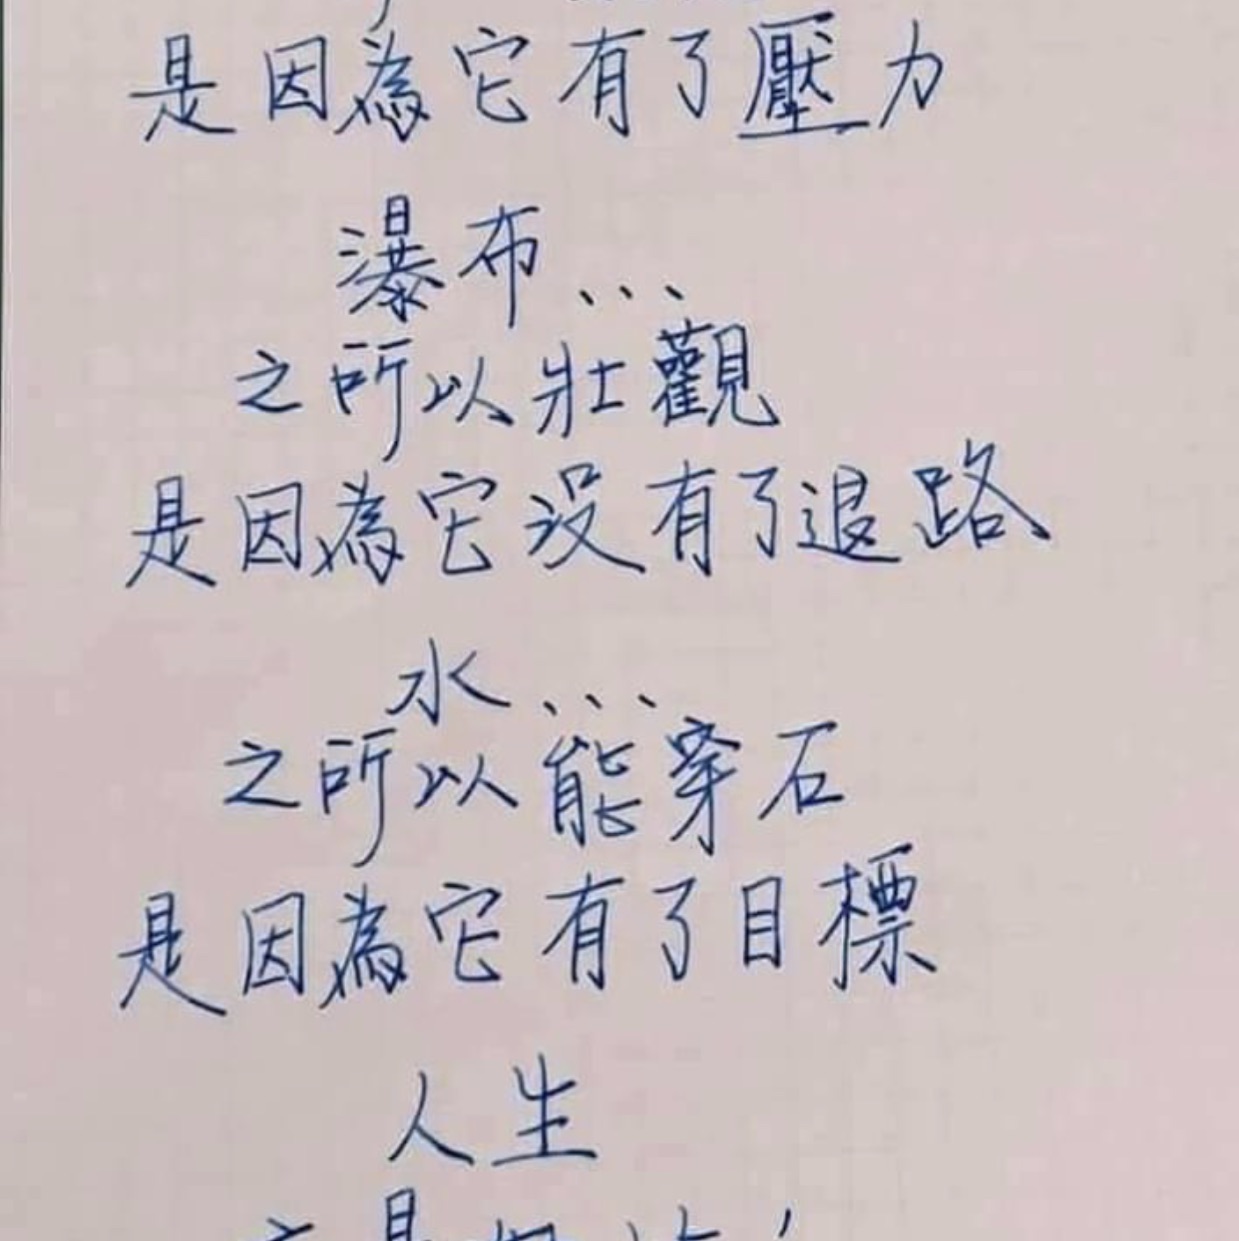 是因為它有了壓力
瀑布...
之所以壯觀
是因為它沒有了退路
水...
之所以能穿石
是因為它有了目標
人生